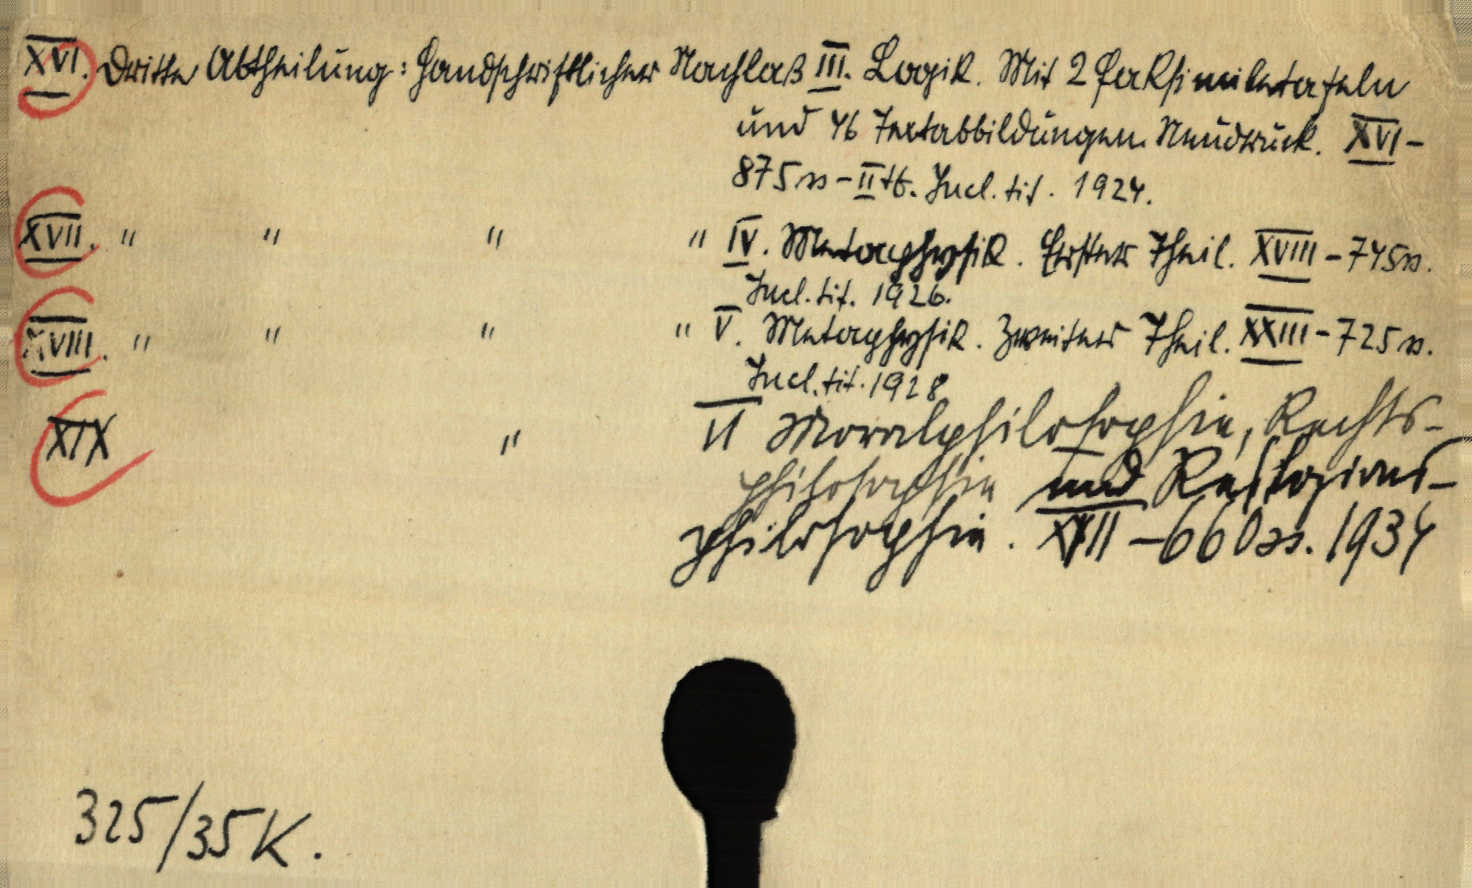 XVI. Dritte Abtheilung: Handschriftlicher Nachlaß III. Logik. Mit 2 Faksimiletafeln
und 46 Textabbildungen. Neudruck. XVI-
875 ss - II tb. Incl. tit. 1924.
XVII. " " " " IV. Metaphysik. Erster Theil. XVIII - 745 ss.
Incl. tit. 1926.
XVIII. " " " " V. Metaphysik. Zweiter Theil. XXIII - 725 ss.
Incl. tit. 1928
XIX " VI Moralphilosophie, Rechts-
philosophie und Religions-
philosophie. XVII - 660 ss. 1934
325/35 K.